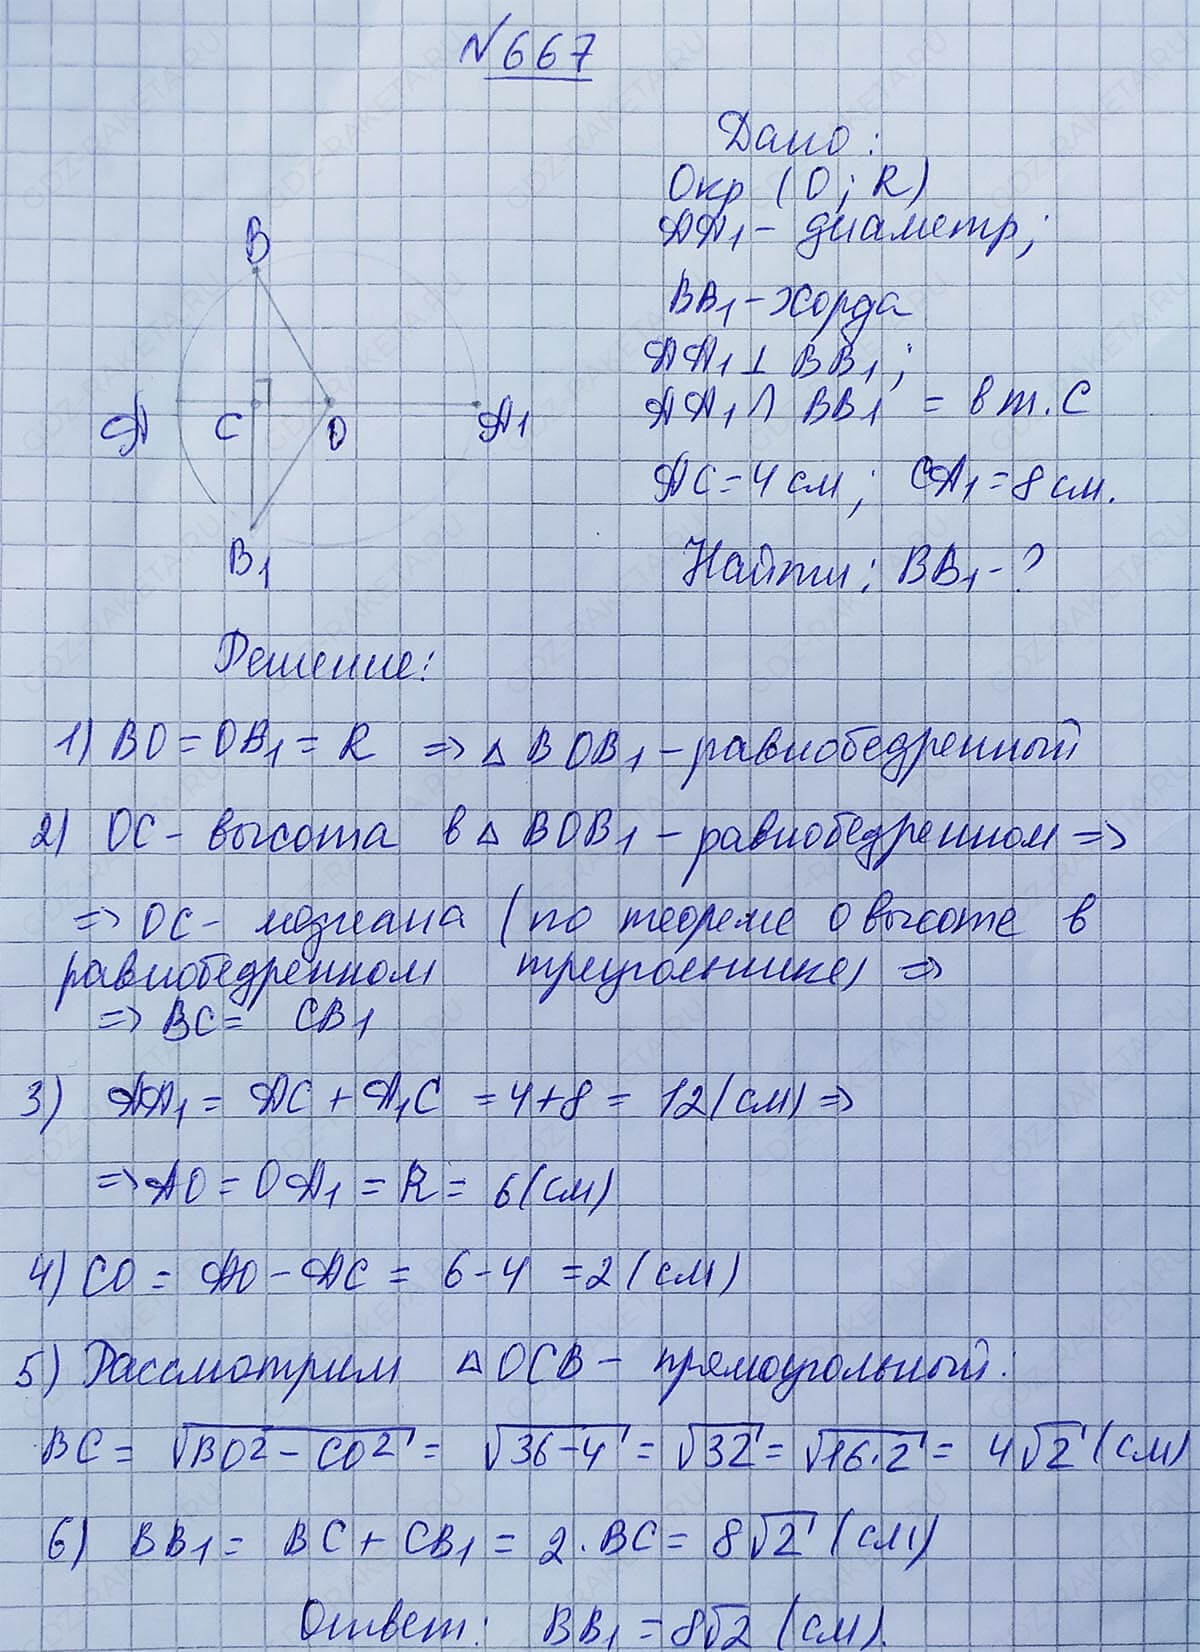 №667
Дано:
Окр (O; R)
AA₁ - диаметр;
BB₁ - хорда
AA₁ ⊥ BB₁;
AA₁ ∩ BB₁ = в т. C
AC = 4 см; CA₁ = 8 см.
Найти: BB₁ - ?
B
A C O A₁
B₁
Решение:
1) BO = OB₁ = R => △ BOB₁ - равнобедренный
2) OC - высота в △ BOB₁ - равнобедренном =>
=> OC - медиана (по теореме о высоте в
равнобедренном треугольнике) =>
=> BC = CB₁
3) AA₁ = AC + A₁C = 4+8 = 12 (см) =>
=> AO = OA₁ = R = 6 (см)
4) CO = AO - AC = 6 - 4 = 2 (см)
5) Рассмотрим △ OCB - прямоугольный:
BC = √(BO² - CO²) = √(36-4) = √32 = √(16·2) = 4√2 (см)
6) BB₁ = BC + CB₁ = 2 · BC = 8√2 (см)
Ответ: BB₁ = 8√2 (см).
GDZ-RAKETA.RU